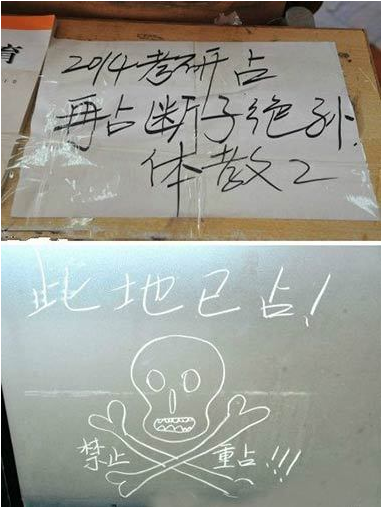 育
2014考研占
再占断子绝孙.
体教2
此地已占!
禁止 重占!!!